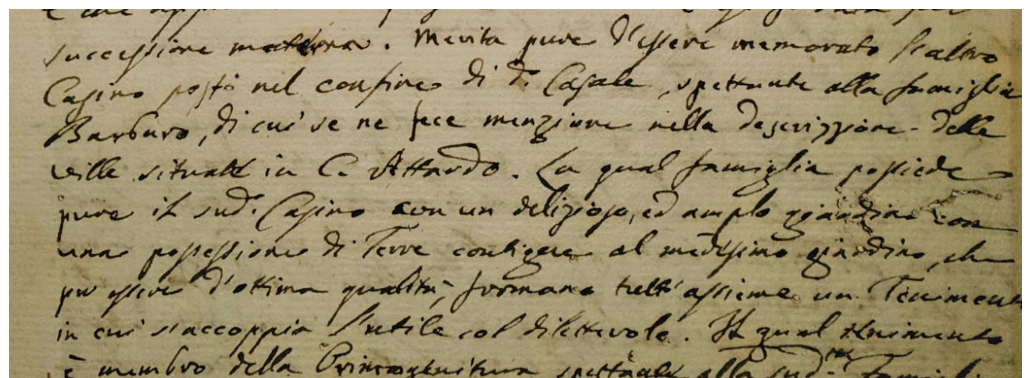 successione materna. Merita pure d'essere memorato l'altro
Casino posto nel confine di d.º Casale, spettante alla famiglia
Barbaro, di cui se ne fece menzione nella descrizzione delle
ville situate in C. Attardo. La qual famiglia possiede
pure il sud.º Casino con un delizioso, ed amplo giardino con
una possessione di Terre contigue al medesimo giardino, che
per essere d'ottima qualità, formano tutt'assieme un Teniment
in cui s'accoppia l'utile col dilettevole. Il qual tenimento
è membro della Primogenitura spettante alla sud.